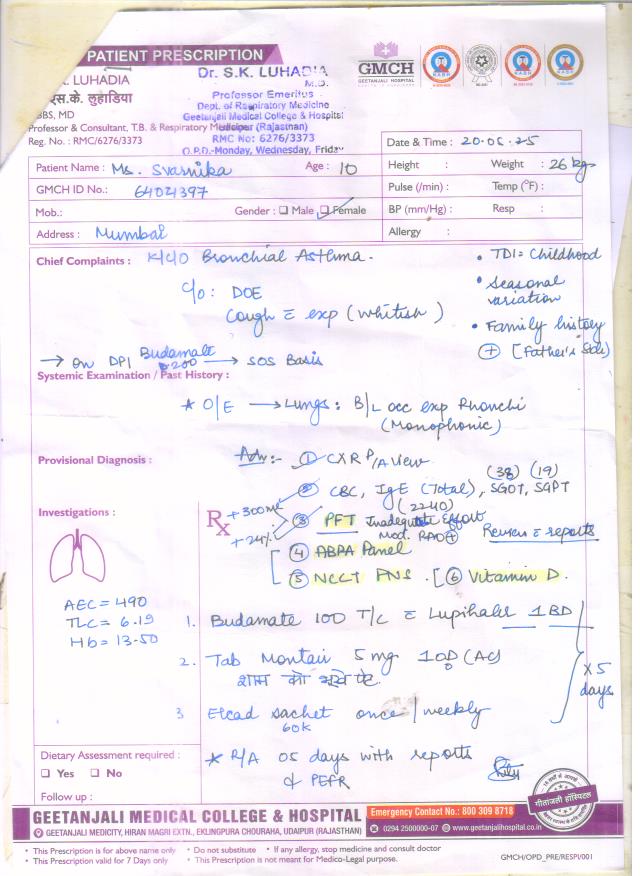 PATIENT PRESCRIPTION
LUHADIA
एस.के. लुहाडिया
BBS, MD
Professor & Consultant, T.B. & Respiratory Medicine
Reg. No. : RMC/6276/3373
Dr. S.K. LUHADIA
M.D.
Professor Emeritus
Dept. of Respiratory Medicine
Geetanjali Medical College & Hospital
(Rajasthan)
RMC No: 6276/3373
O.P.D.-Monday, Wednesday, Friday
GMCH
GEETANJALI HOSPITAL
Patient Name : Ms. Svarnika Age : 10
GMCH ID No.: 6404397
Mob.: Gender : Male Female
Address : Mumbai
Date & Time : 20.05.25
Height : Weight : 26 kg
Pulse (/min) : Temp (°F) :
BP (mm/Hg) : Resp :
Allergy :
Chief Complaints : K/C/O Bronchial Asthma.
C/o: DOE
Cough c exp (whitish)
• TDI = Childhood
• Seasonal variation
• Family history
(+) [Father's side]
→ On DPI Budamate 200 → SOS Basis
Systemic Examination / Past History :
* O/E → Lungs : B/L occ exp Rhonchi
(Monophonic)
Provisional Diagnosis :
Adv :- ① CXR P/A view
(38) (19)
② CBC, IgE (Total), SGOT, SGPT
(2240)
Investigations :
Rx
+300ml
+24%
③ PFT Inadequate Effort
Mod. RAO (+)
Review c reports
④ ABPA Panel
⑤ NCCT PNS. [⑥ Vitamin D.
AEC = 490
TLC = 6.19
Hb = 13.50
1. Budamate 100 T/C c Lupihaler 1 BD
2. Tab Montair 5 mg 1 OD (AC)
शाम को भूखे पेट
3 Elcad sachet once / weekly
60k
x 5 days
* R/A 05 days with reports
& PEFR
Dietary Assessment required :
Yes No
Follow up :
गीतांजली हॉस्पिटल
GEETANJALI MEDICAL COLLEGE & HOSPITAL
GEETANJALI MEDICITY, HIRAN MAGRI EXTN., EKLINGPURA CHOURAHA, UDAIPUR (RAJASTHAN)
Emergency Contact No.: 800 309 8718
0294 2500000-07 www.geetanjalihospital.co.in
• This Prescription is for above name only • Do not substitute • If any allergy, stop medicine and consult doctor
• This Prescription valid for 7 Days only • This Prescription is not meant for Medico-Legal purpose.
GMCH/OPD_PRE/RESPI/001